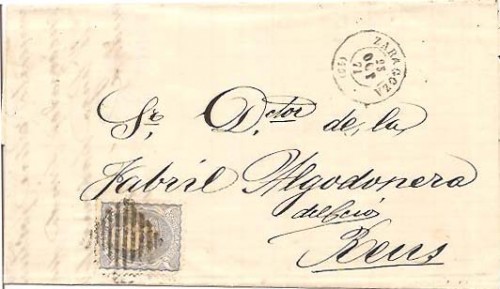 ZARAGOZA
23
OCT
71
(65)
Sr. D.tor de la
Fabril Algodonera
Reus